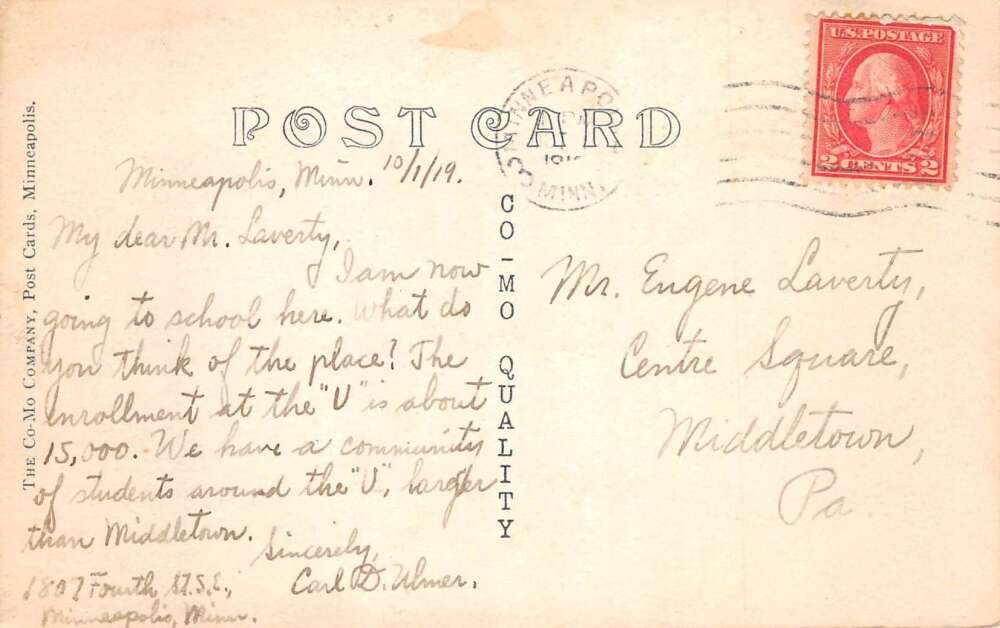 POST CARD
THE CO-MO COMPANY, Post Cards, Minneapolis.
CO-MO QUALITY
MINNEAPO
MINN.
3
U.S. POSTAGE
2 CENTS 2
Minneapolis, Minn. 10/1/19.
My dear Mr. Laverty,
I am now
going to school here. What do
you think of the place? The
enrollment at the "U" is about
15,000. We have a community
of students around the "U", larger
than Middletown.
Sincerely,
Carl D. Ulmer.
1807 Fourth St. S.E.,
Minneapolis, Minn.
Mr. Eugene Laverty,
Centre Square,
Middletown,
Pa.